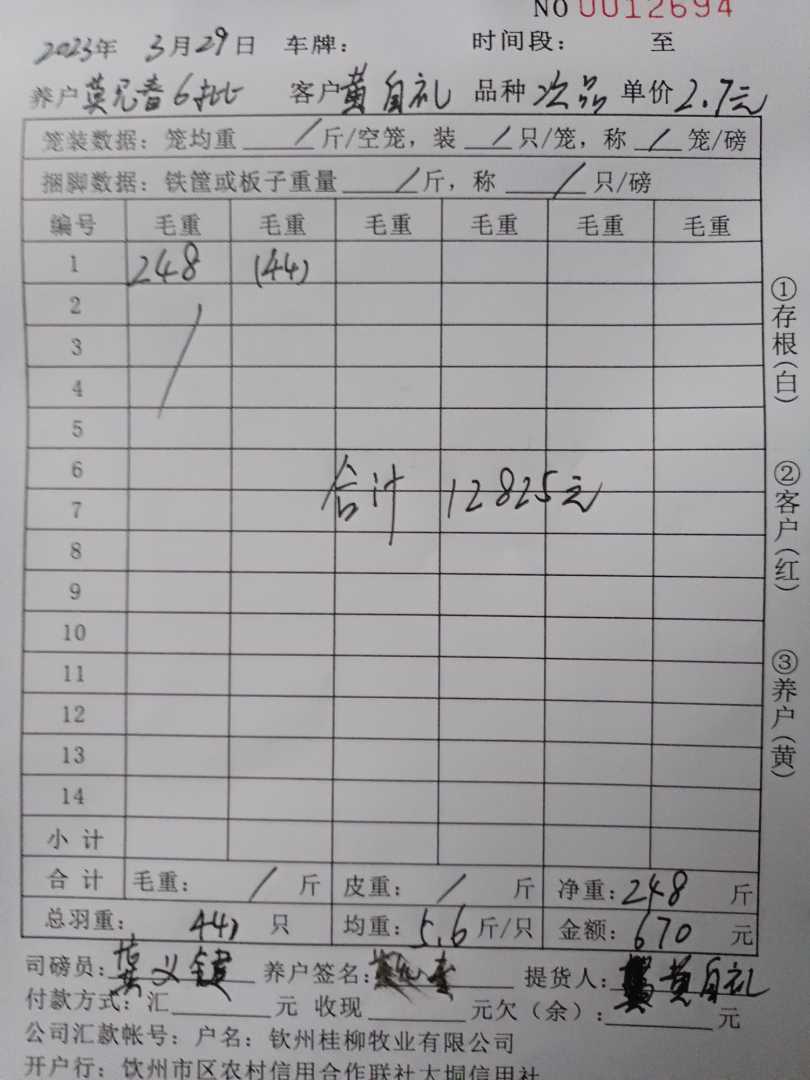 NO 0012694
2023年 3月29日 车牌： 时间段： 至
养户 莫兄春6批 客户 黄自礼 品种 次品 单价 2.7元
笼装数据：笼均重 / 斤/空笼，装 / 只/笼，称 / 笼/磅
捆脚数据：铁筐或板子重量 / 斤，称 / 只/磅
编号 毛重 毛重 毛重 毛重 毛重 毛重
1 248 (44)
2
3
4
5
6
合计 12825元
7
8
9
10
11
12
13
14
小计
合计 毛重： / 斤 皮重： / 斤 净重：248 斤
总羽重： 44) 只 均重：5.6 斤/只 金额：670 元
司磅员： 义键 养户签名： 提货人：黄自礼
付款方式：汇 元 收现 元欠（余）： 元
公司汇款帐号：户名：钦州桂柳牧业有限公司
开户行：钦州市区农村信用合作联社大垌信用社
①存根(白)
②客户(红)
③养户(黄)